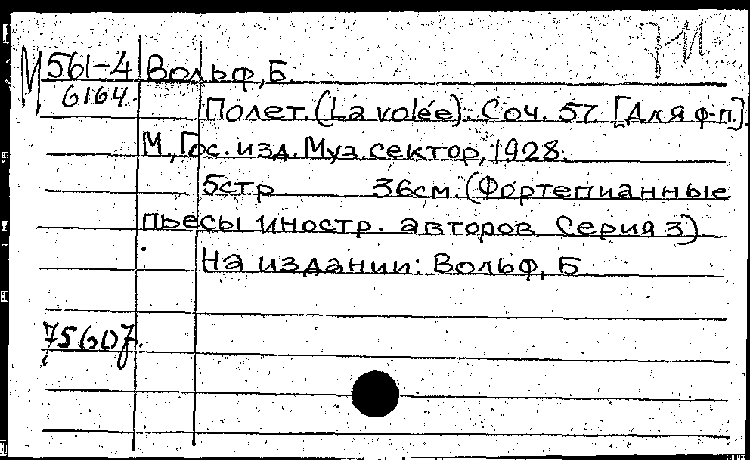 М 561-4 Вольф, Б.
6164.
Полет. (La volée). Соч. 57. [Для ф-п.].
М., Гос. изд. Муз. сектор, 1928.
5стр 36см. (Фортепианные
пьесы иностр. авторов. Серия 3)
На издании: Вольф, Б